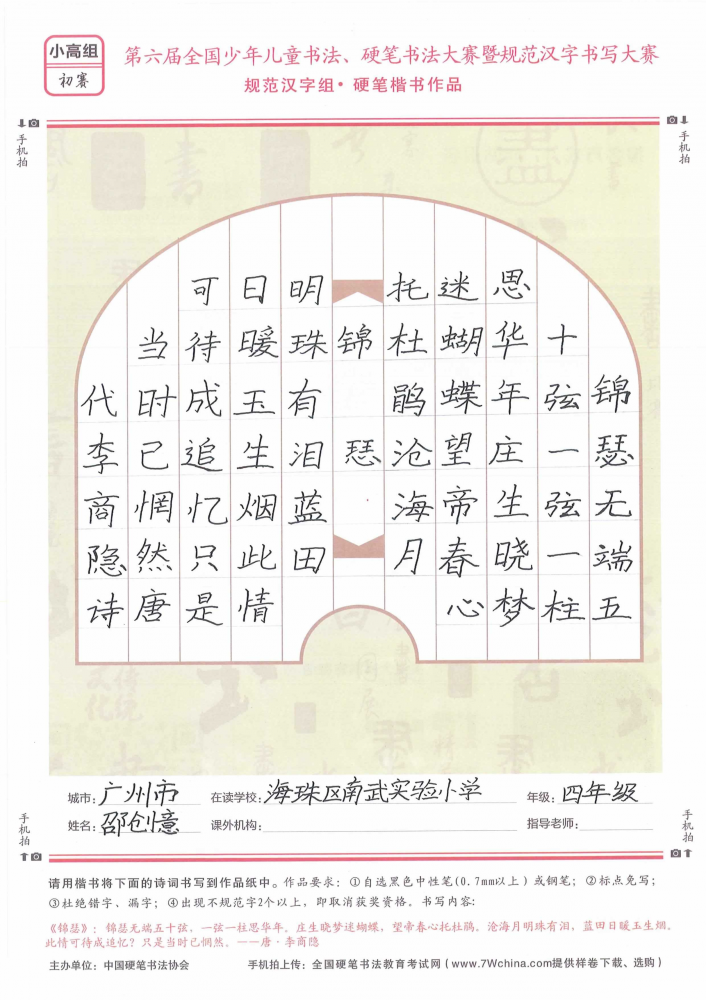 小高组
初赛
第六届全国少年儿童书法、硬笔书法大赛暨规范汉字书写大赛
规范汉字组•硬笔楷书作品
手机拍
手机拍
锦瑟无端五
十弦一弦一柱
思华年庄生晓梦
迷蝴蝶望帝春心
托杜鹃沧海月
锦瑟
明珠有泪蓝田
日暖玉生烟此情
可待成追忆只是
当时已惘然唐
代李商隐诗
城市：广州市 在读学校：海珠区南武实验小学 年级：四年级
姓名：邵创憶 课外机构： 指导老师：
手机拍
手机拍
请用楷书将下面的诗词书写到作品纸中。作品要求：①自选黑色中性笔(0.7mm以上)或钢笔；②标点免写；
③杜绝错字、漏字；④出现不规范字2个以上，即取消获奖资格。书写内容：
《锦瑟》：锦瑟无端五十弦，一弦一柱思华年。庄生晓梦迷蝴蝶，望帝春心托杜鹃。沧海月明珠有泪，蓝田日暖玉生烟。
此情可待成追忆？只是当时已惘然。——唐·李商隐
主办单位：中国硬笔书法协会 手机拍上传：全国硬笔书法教育考试网（www.7Wchina.com提供样卷下载、选购）